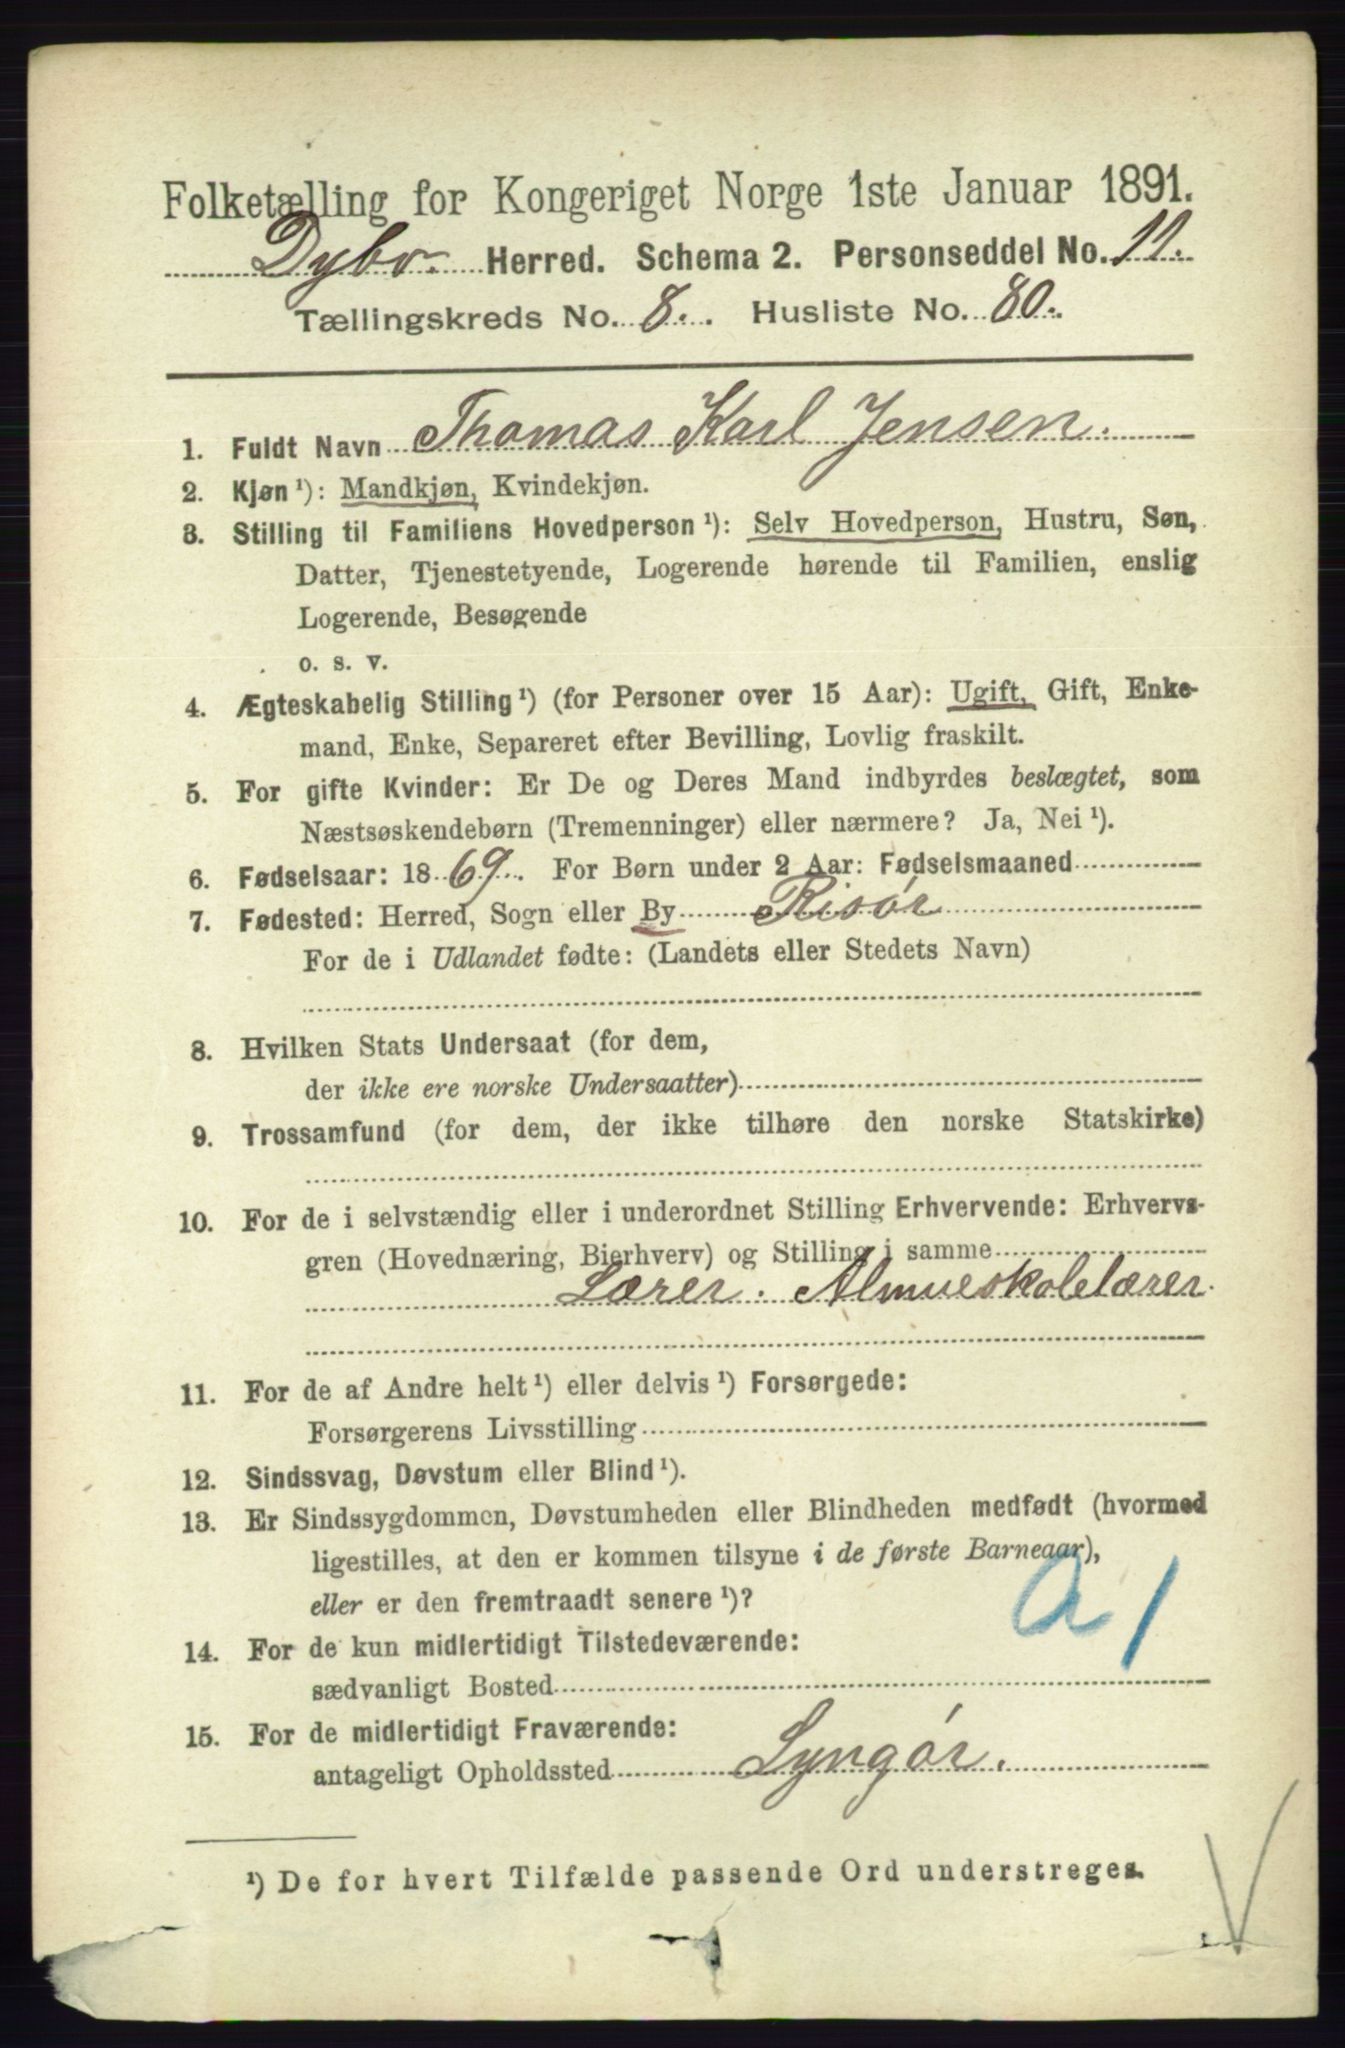 Folketælling for Kongeriget Norge 1ste Januar 1891.
Dybv. Herred. Schema 2. Personseddel No. 11.
Tællingskreds No. 8. Husliste No. 80.
1. Fuldt Navn Thomas Karl Jensen.
2. Kjøn ¹): Mandkjøn, Kvindekjøn.
3. Stilling til Familiens Hovedperson ¹): Selv Hovedperson, Hustru, Søn,
Datter, Tjenestetyende, Logerende hørende til Familien, enslig
Logerende, Besøgende
o. s. v.
4. Ægteskabelig Stilling ¹) (for Personer over 15 Aar): Ugift, Gift, Enke-
mand, Enke, Separeret efter Bevilling, Lovlig fraskilt.
5. For gifte Kvinder: Er De og Deres Mand indbyrdes beslægtet, som
Næstsøskendebørn (Tremenninger) eller nærmere? Ja, Nei ¹).
6. Fødselsaar: 1869. For Børn under 2 Aar: Fødselsmaaned
7. Fødested: Herred, Sogn eller By Risør
For de i Udlandet fødte: (Landets eller Stedets Navn)
8. Hvilken Stats Undersaat (for dem,
der ikke ere norske Undersaatter)
9. Trossamfund (for dem, der ikke tilhøre den norske Statskirke)
10. For de i selvstændig eller i underordnet Stilling Erhvervende: Erhvervs-
gren (Hovednæring, Bierhverv) og Stilling i samme
Lærer. Almueskolelærer.
11. For de af Andre helt ¹) eller delvis ¹) Forsørgede:
Forsørgerens Livsstilling
12. Sindssvag, Døvstum eller Blind ¹).
13. Er Sindssygdommen, Døvstumheden eller Blindheden medfødt (hvormed
ligestilles, at den er kommen tilsyne i de første Barneaar),
eller er den fremtraadt senere ¹)?
a 1
14. For de kun midlertidigt Tilstedeværende:
sædvanligt Bosted
15. For de midlertidigt Fraværende:
antageligt Opholdssted Lyngør.
¹) De for hvert Tilfælde passende Ord understreges.